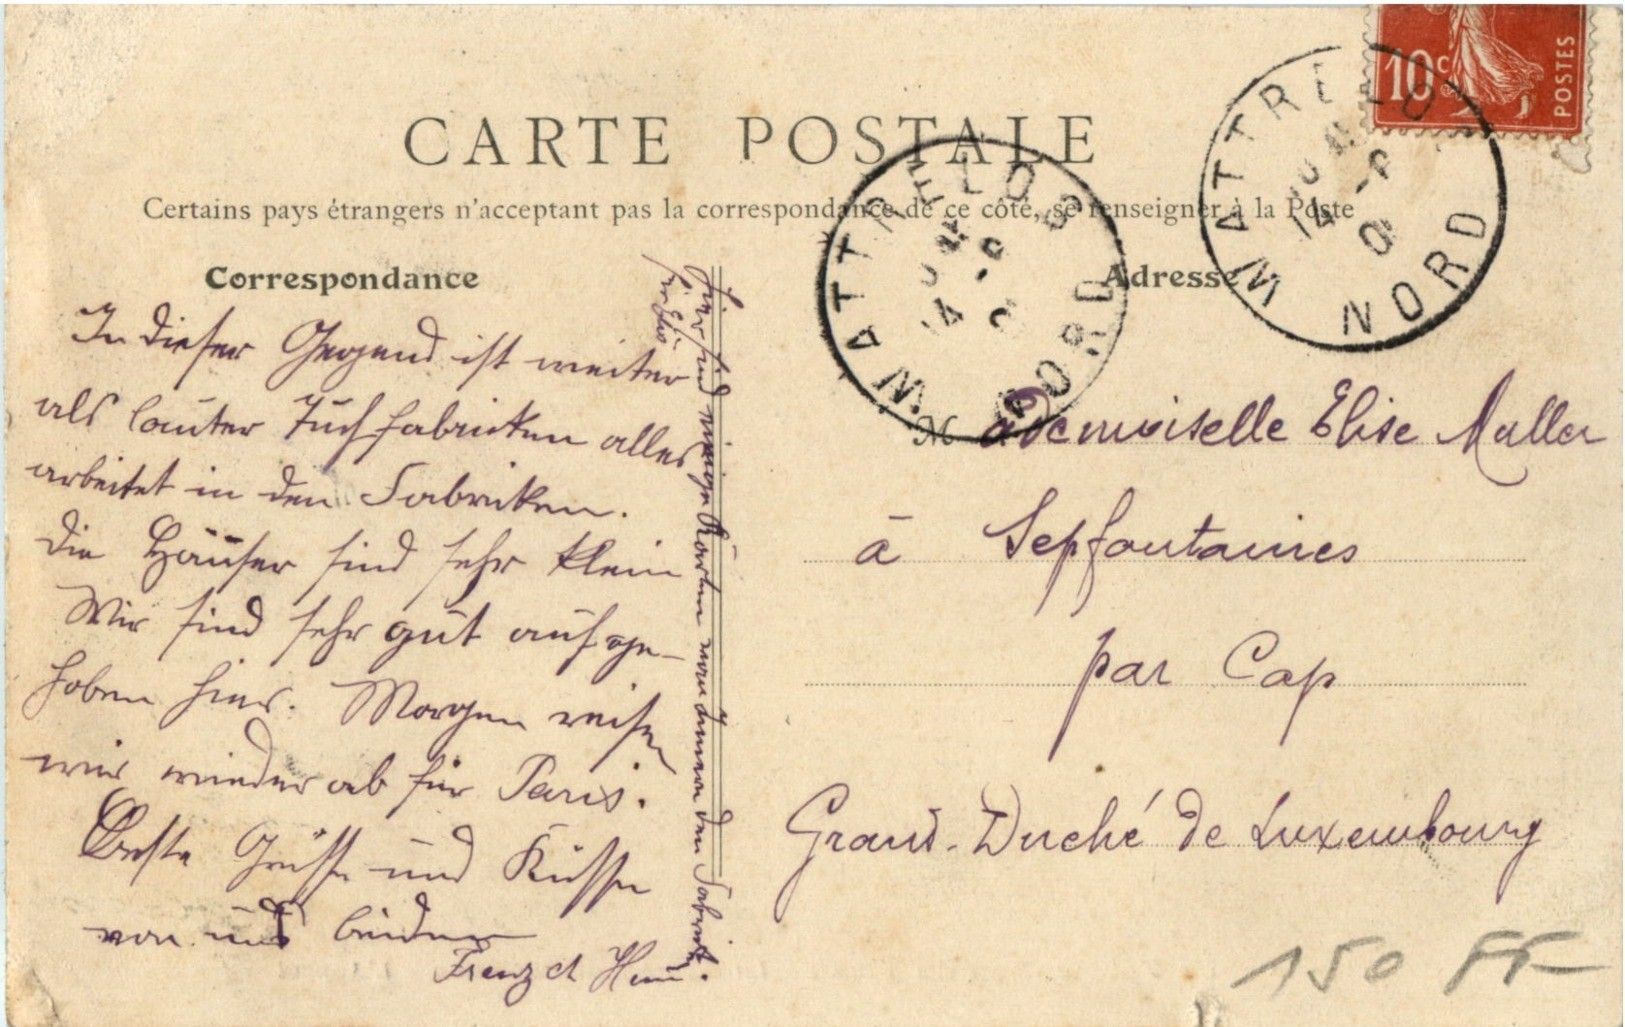 CARTE POSTALE
Certains pays étrangers n'acceptant pas la correspondance de ce côté, se renseigner à la Poste
Correspondance
Adresse
10c
POSTES
WATTRELOS
NORD
14 -8
WATTRELOS
NORD
14 -8
In dieser Gegend ist weiter
als lauter Tuchfabriken alles
arbeitet in den Fabriken.
Die Häuser sind sehr klein
Wir sind sehr gut aufge-
hoben hier. Morgen reisen
wir wieder ab für Paris.
Beste Grüsse und Küsse
von uns beiden
Hier sind einige Karten von Innern den Fabrik.
für Euch
Mademoiselle Elise Muller
à Sepfontaines
par Cap
Grand-Duché de Luxembourg
150 FF